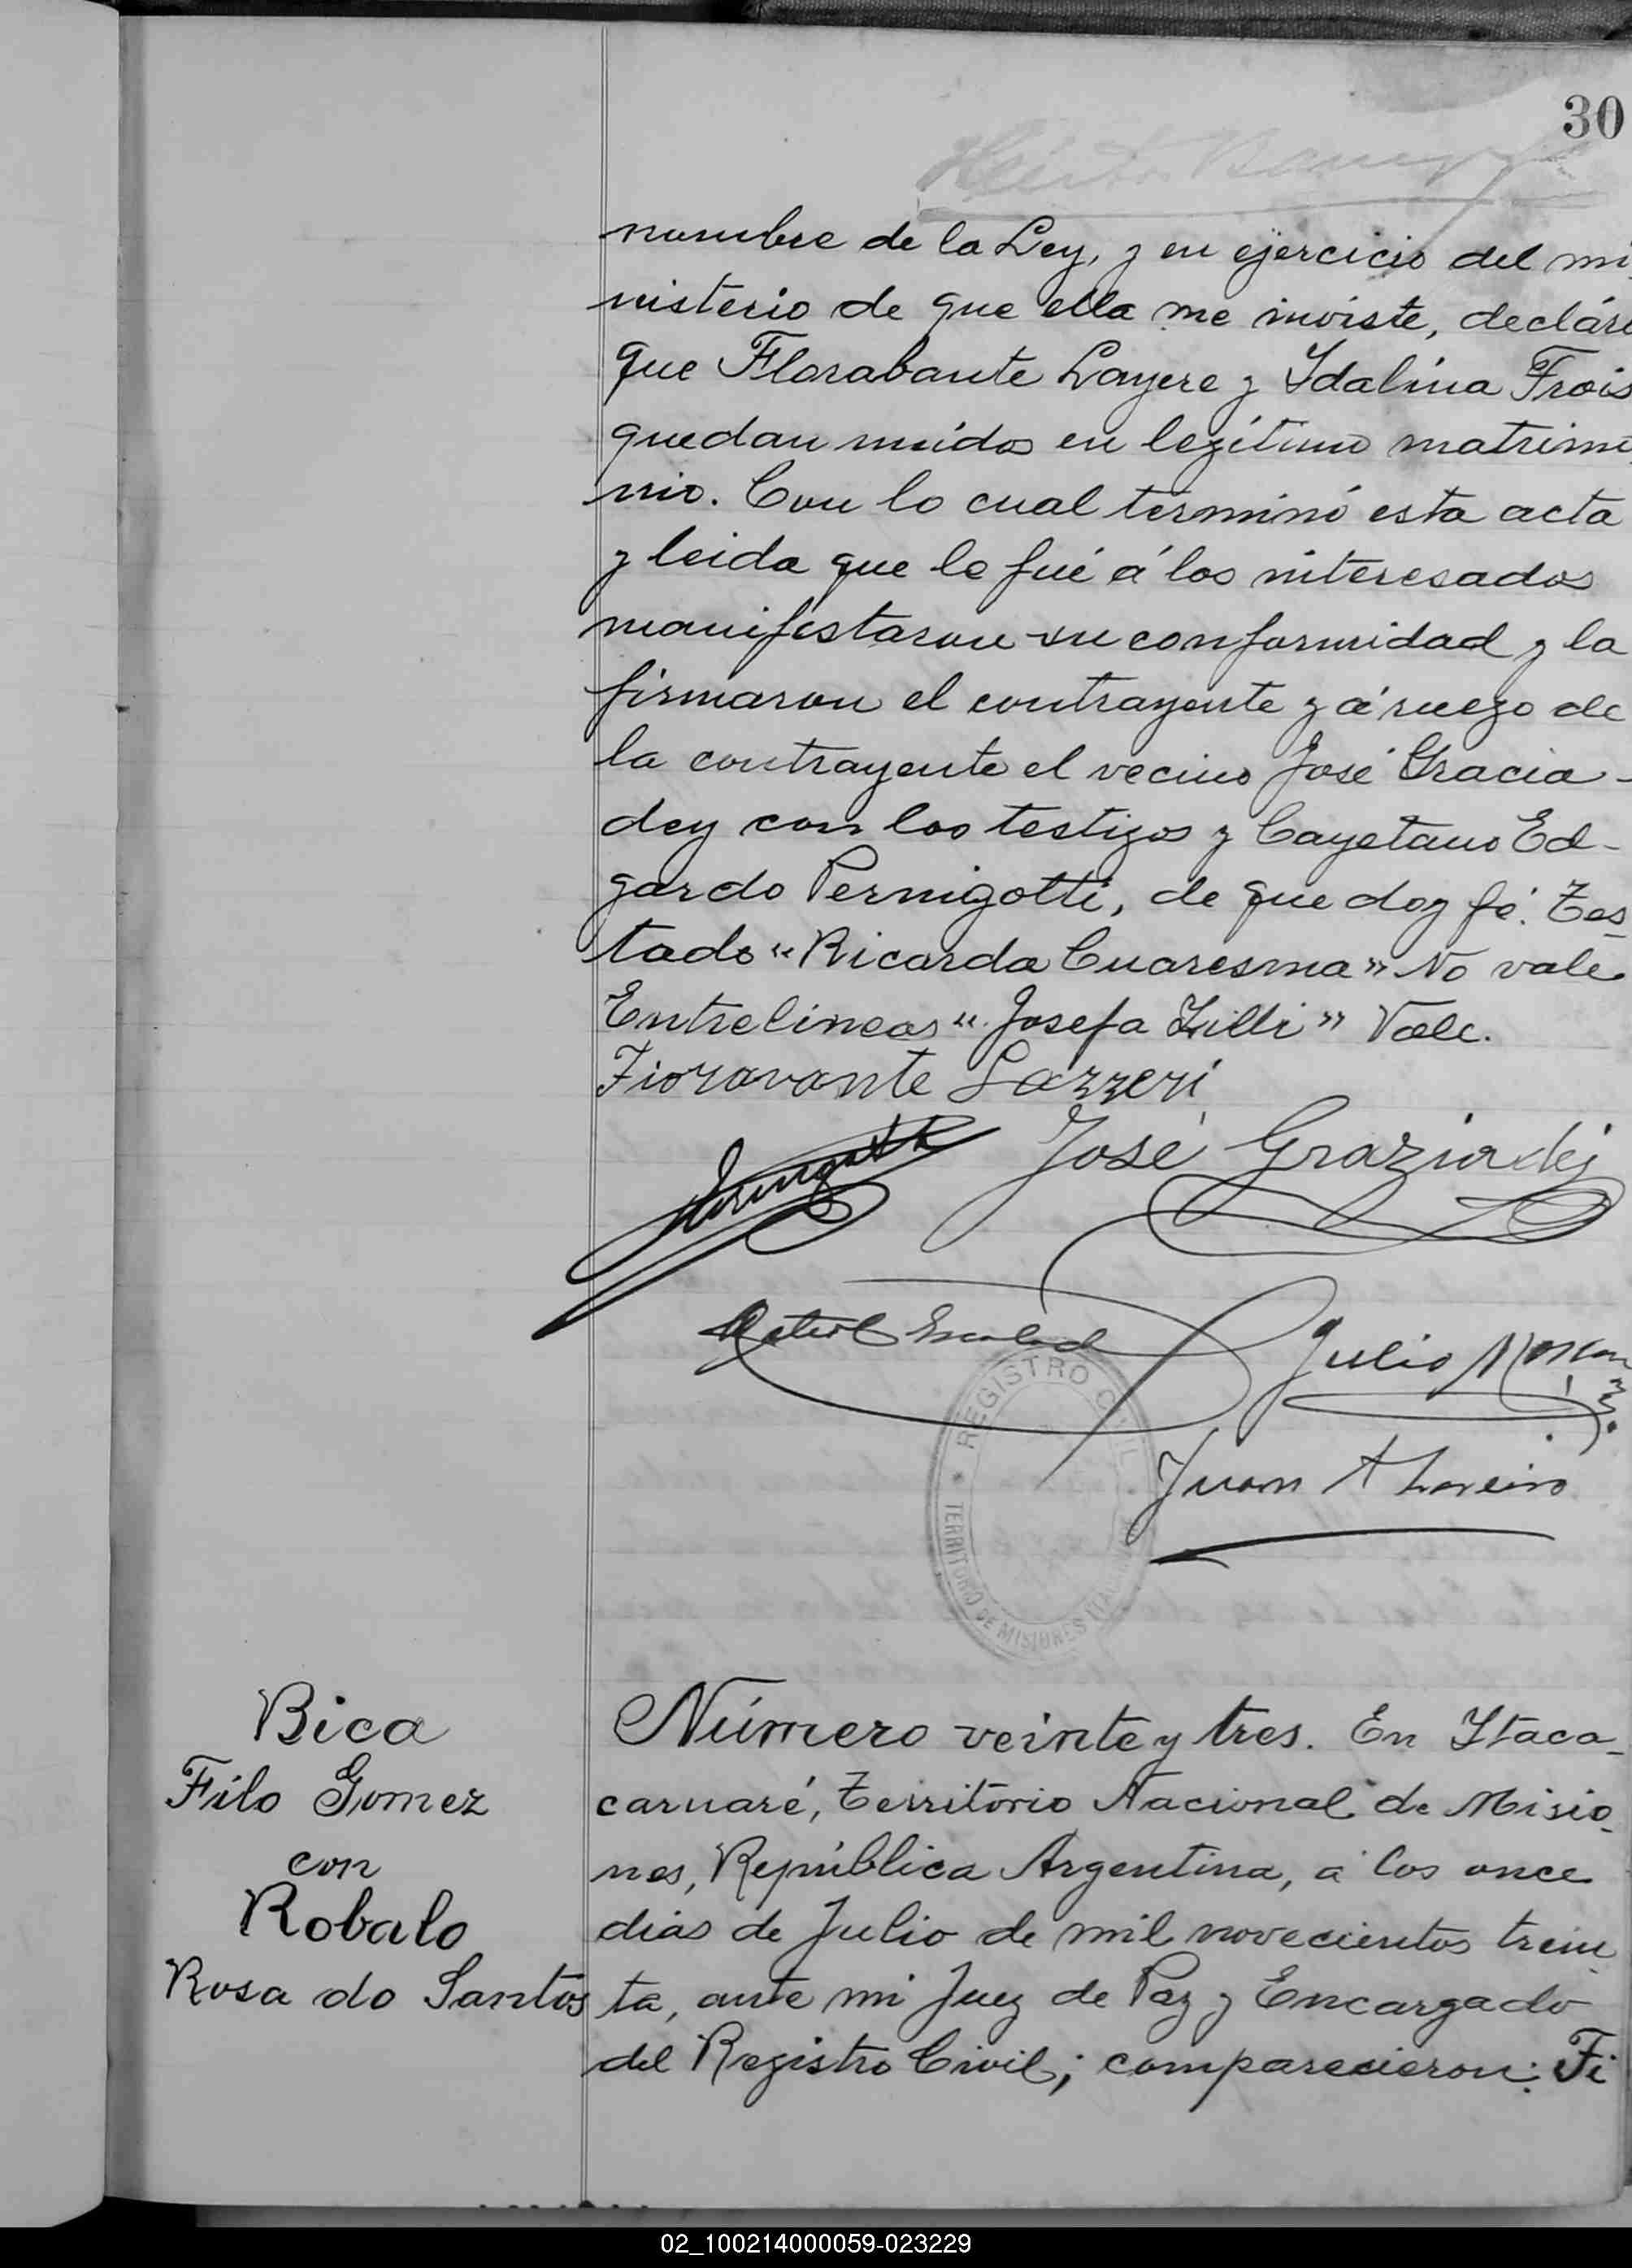 30
nombre de la Ley, y en ejercicio del mi
nisterio de que ella me inviste, decláro
que Florabante Layere y Idalina Frois
quedan unidos en legítimo matrimo
nio. Con lo cual terminó esta acta
y leida que le fué á los interesados
manifestaron su conformidad y la
firmaron el contrayente y á ruego de
la contrayente el vecino José Gracia-
dey con los testigos y Cayetano Ed-
gardo Pernigotti, de que doy fé. Tes
tado "Ricarda Cuaresma" No vale
Entrelineas "Josefa Zilli" Vale.
Fioravante Lazzeri
José Graziadei
Julio
Juan A
REGISTRO CIVIL
TERRITORIO DE MISIONES
Bica
Filo Gomez
con
Robalo
Rosa do Santos
Número veinte y tres. En Itaca-
caruaré, Territorio Nacional de Misio
nes, República Argentina, á los once
dias de Julio de mil novecientos trein
ta, ante mi Juez de Paz y Encargado
del Registro Civil; comparecieron: Fi
02_100214000059-023229